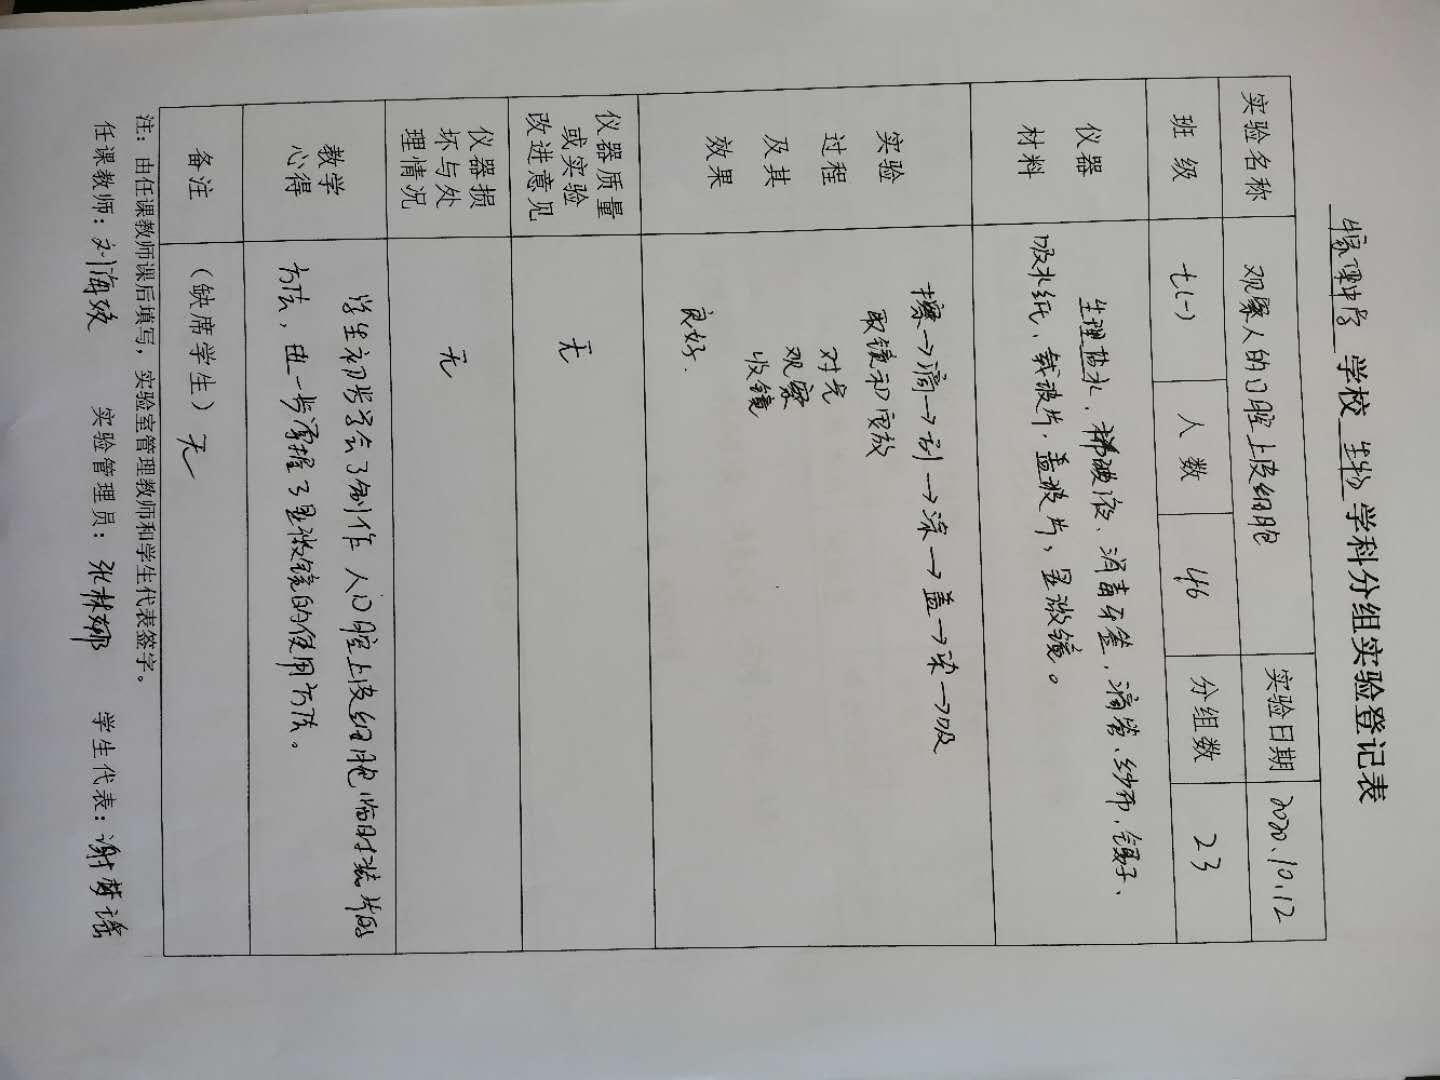 学校 生物 学科分组实验登记表
实验名称 观察人的口腔上皮细胞 实验日期 2020.10.12
班级 七(一) 人数 46 分组数 23
仪器材料 生理盐水、稀碘液、消毒牙签，滴管、纱布、镊子、
吸水纸、载玻片、盖玻片、显微镜。
实验过程及其效果 擦→滴→刮→涂→盖→染→吸
取镜和安放
对光
观察
收镜
良好.
仪器质量或实验改进意见 无
仪器损坏与处理情况 无
教学心得 学生初步学会了制作人口腔上皮细胞临时装片的
方法，进一步掌握了显微镜的使用方法。
备注 (缺席学生) 无
注：由任课教师课后填写，实验室管理教师和学生代表签字。
任课教师：刘海 实验管理员：张林娜 学生代表：谢梦谣